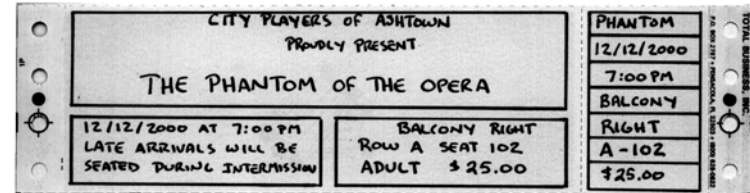 CITY PLAYERS OF ASHTOWN
PROUDLY PRESENT
THE PHANTOM OF THE OPERA
12/12/2000 AT 7:00 PM
LATE ARRIVALS WILL BE
SEATED DURING INTERMISSION
BALCONY RIGHT
ROW A SEAT 102
ADULT $25.00
PHANTOM
12/12/2000
7:00 PM
BALCONY
RIGHT
A-102
$25.00
TOTAL BUSINESS